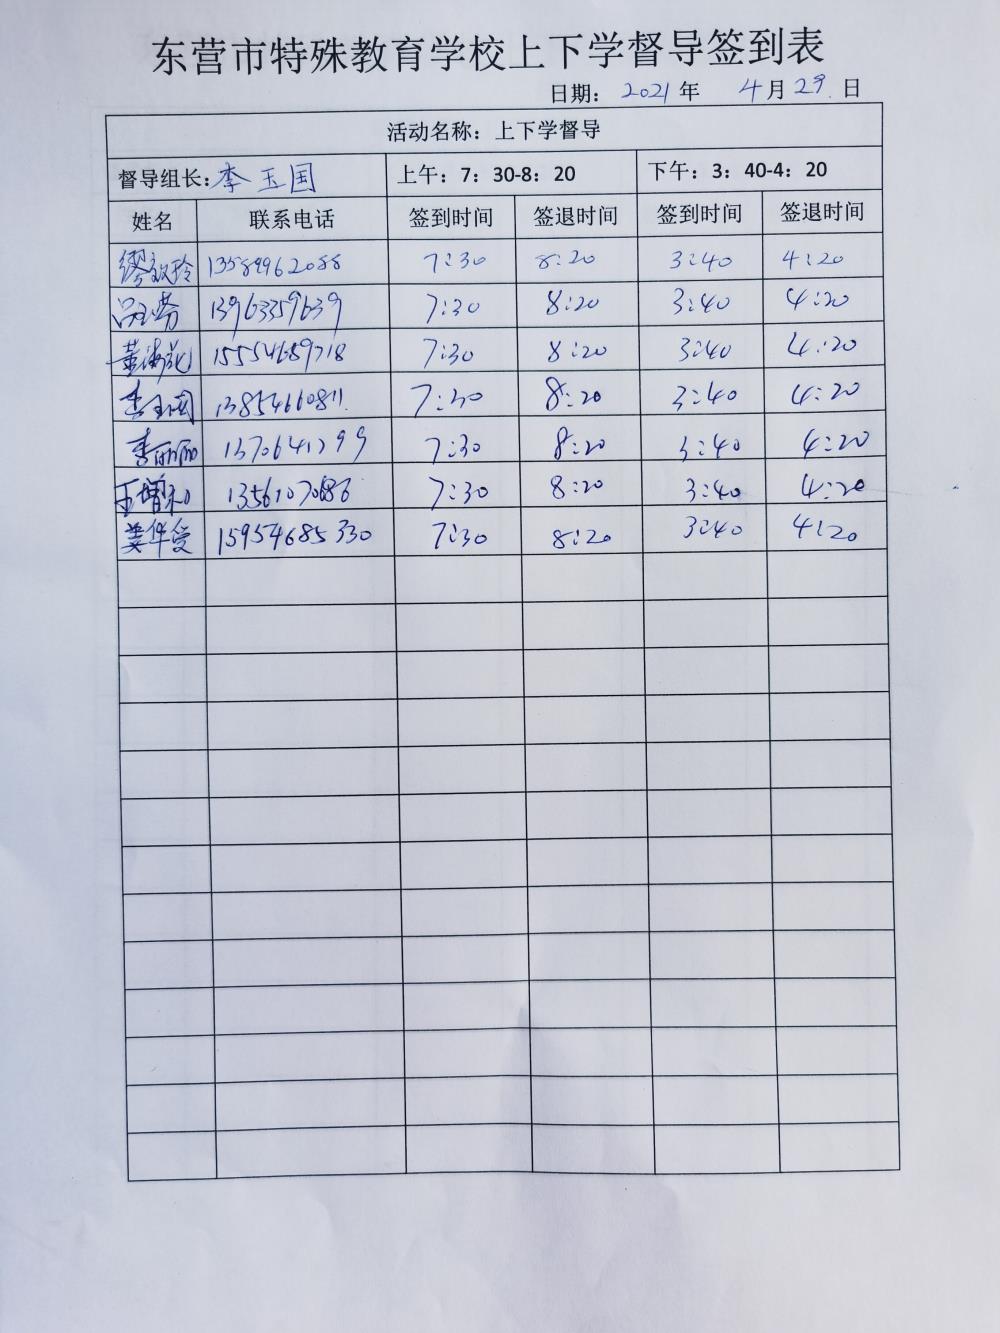 东营市特殊教育学校上下学督导签到表
日期： 2021 年 4月 29 日
活动名称：上下学督导
督导组长：李玉国 上午：7：30-8：20 下午：3：40-4：20
姓名 联系电话 签到时间 签退时间 签到时间 签退时间
13589962088 7:30 8:20 3:40 4:20
13963359639 7:30 8:20 3:40 4:20
黄海花 15554689718 7:30 8:20 3:40 4:20
李玉国 13854660811 7:30 8:20 3:40 4:20
李丽丽 7:30 8:20 3:40 4:20
王增和 7:30 8:20 3:40 4:20
姜华爱 15954685330 7:30 8:20 3:40 4:20